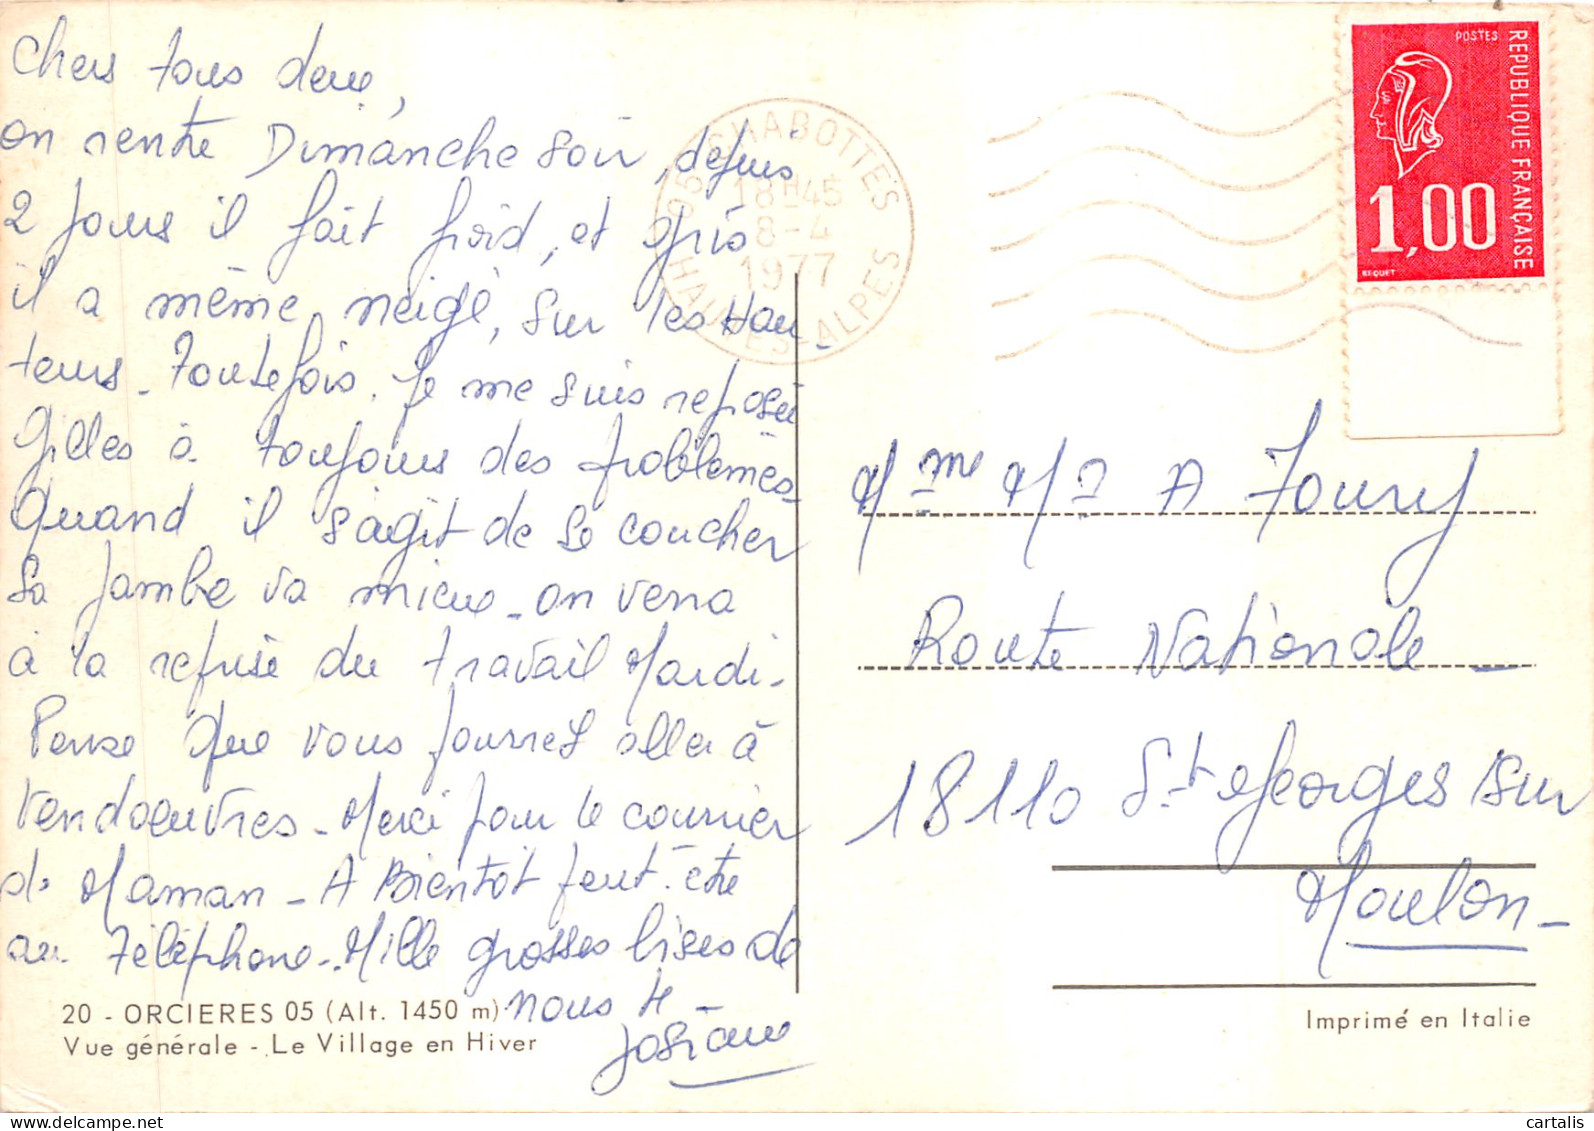 Chers tous deux,
on rentre Dimanche soir, depuis
2 jours il fait froid, et gris
il a même neigé, sur les Hau-
teurs - Toutefois. Je me suis reposée
Gilles à toujours des problèmes
Quand il s'agit de se coucher
Sa jambe va mieux - on verra
à la reprise du travail Mardi -
Pense que vous pourrez aller à
Vendoeuvres - Merci pour le courrier
de Maman - A Bientôt peut-être
au Téléphone - Mille grosses bises de
nous 4 -
Josiane
20 - ORCIERES 05 (Alt. 1450 m)
Vue générale - Le Village en Hiver
05 CHABOTTES
18H45
8-4
1977
HAUTES-ALPES
POSTES
REPUBLIQUE FRANÇAISE
1,00
BEQUET
Mme Mr A Foury
Route Nationale -
18110 St Georges sur
Moulon -
Imprimé en Italie
cartalis
www.delcampe.net